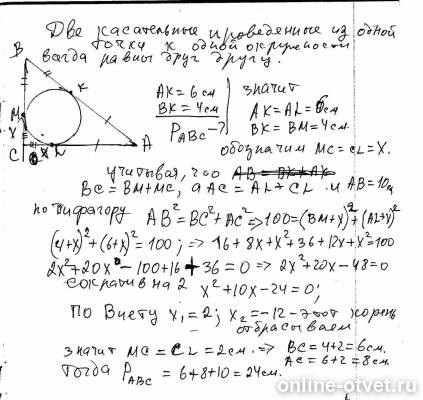 Две касательные проведенные из одной
точки к одной окружности
всегда равны друг другу.
B
K
M
x
C
x
L
A
AK = 6 см
BK = 4 см
P ABC - ?
значит
AK = AL = 6 см
BK = BM = 4 см.
обозначим MC = CL = X.
учитывая, что AB = BK + AK
BC = BM + MC, а AC = AL + CL и AB = 10
по пифагору AB² = BC² + AC² => 100 = (BM+X)² + (AL+X)²
(4+x)² + (6+x)² = 100; => 16 + 8x + x² + 36 + 12x + x² = 100
2x² + 20x - 100 + 16 + 36 = 0 => 2x² + 20x - 48 = 0
сократив на 2 x² + 10x - 24 = 0;
По Виету x₁ = 2; x₂ = -12 - этот корень
отбрасываем
значит MC = CL = 2 см. => BC = 4 + 2 = 6 см.
AC = 6 + 2 = 8 см.
Тогда P ABC = 6 + 8 + 10 = 24 см.
online-otvet.ru